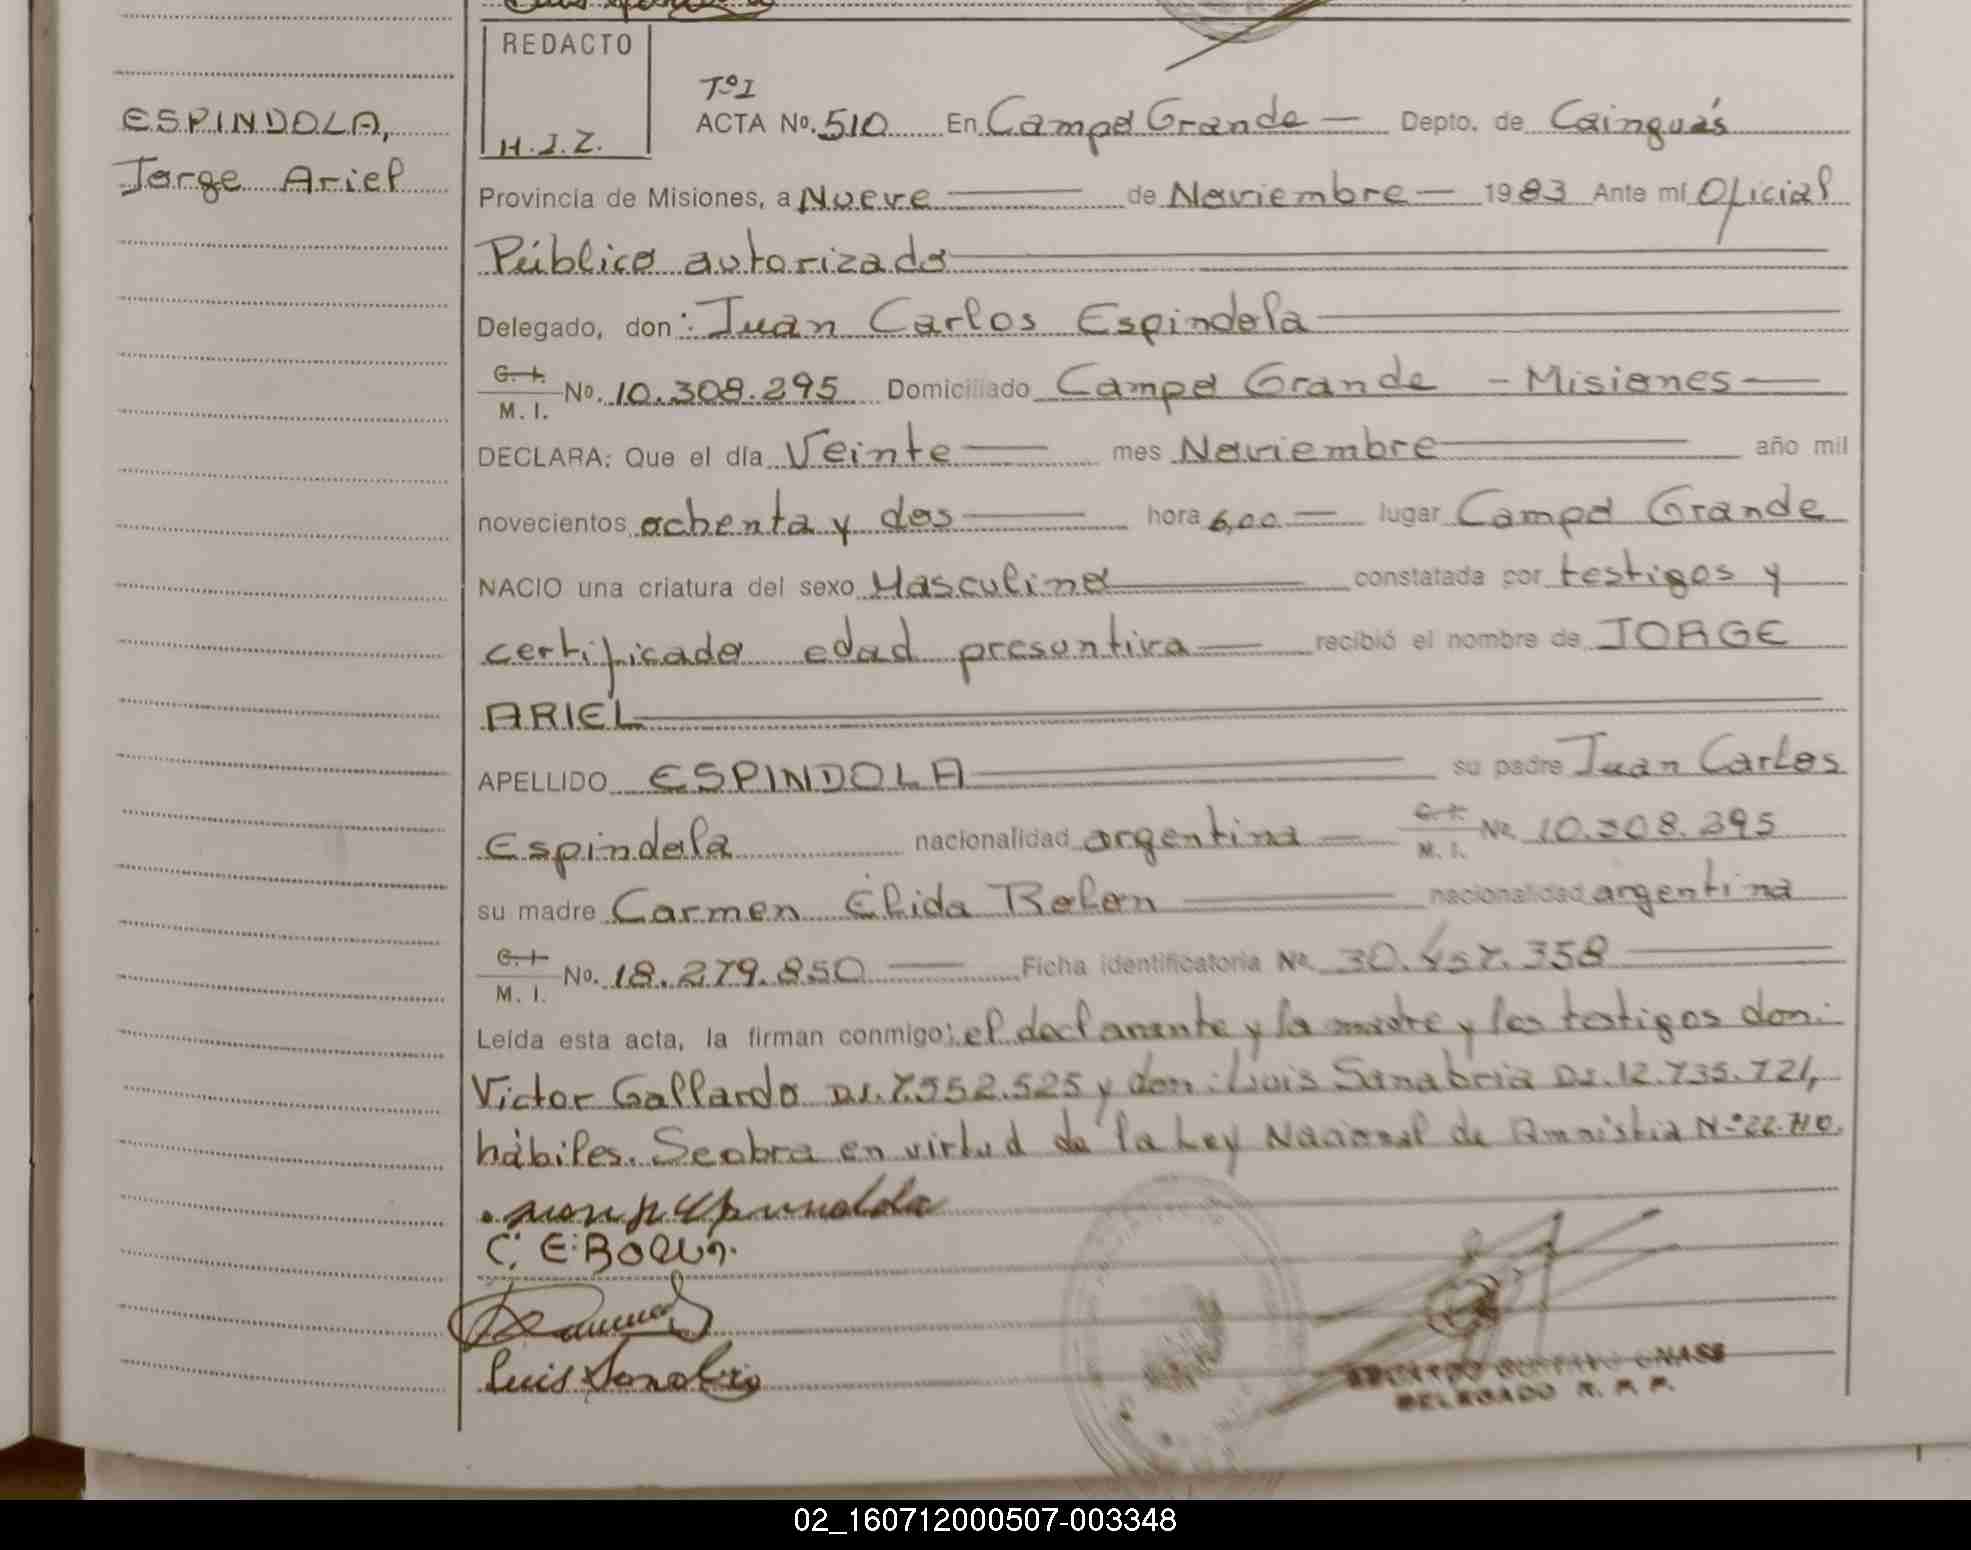 REDACTO
H.J.Z.
ESPINDOLA,
Jorge Ariel
TºI
ACTA Nº. 510 En Campo Grande — Depto. de Cainguás
Provincia de Misiones, a Nueve — de Noviembre — 1983 Ante mí Oficial
Público autorizado
Delegado, don: Juan Carlos Espindola
C. I. M. I. Nº. 10.308.295 Domiciliado Campo Grande - Misiones —
DECLARA: Que el día Veinte — mes Noviembre — año mil
novecientos ochenta y dos — hora 6,00 — lugar Campo Grande
NACIO una criatura del sexo Masculino — constatada por testigos y
certificado edad presuntiva — recibió el nombre de JORGE
ARIEL
APELLIDO ESPINDOLA — su padre Juan Carlos
Espindola nacionalidad argentina — C. I. M. I. Nº 10.308.295
su madre Carmen Élida Rolon — nacionalidad argentina
C. I. M. I. Nº. 18.279.850 — Ficha identificatoria Nº 30.457.358
Leída esta acta, la firman conmigo: el declarante y la madre y los testigos don:
Victor Gallardo D.I. 7.552.525 y don: Luis Sanabria D.I. 12.735.721,
hábiles. Se obra en virtud de la Ley Nacional de Amnistia N-º22.710.
C. E. Rolon.
Luis Sanabria
DELEGADO R. P. P.
02_160712000507-003348